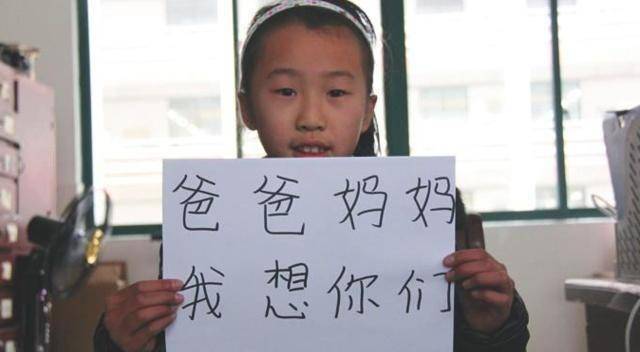 爸爸妈妈
我想你们